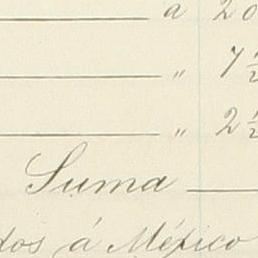 a 20
" 7 1/2
" 2 1/2
Suma
dos á México